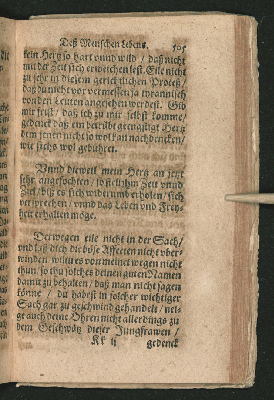 Deß Menschen Lebens. 505
kein Hertz so hart vnnd wild / daß nicht
mit der Zeit sich erweichen lest. Eile nicht
zu sehr in diesem gerichtlichen Proceß /
daß du nicht vor vermessen / ja tyrannisch
von den Leuten angesehen werdest. Gib
mir frist / daß ich zu mir selbst komme /
gedenck daß ein betrübt geängstigt Hertz
dem jenen nicht so wol kan nachdencken /
wie sichs wol gebühret.
Vnnd dieweil mein Hertz an jetzt
sehr angefochten / so ist jhm Zeit vnnd
Ziel / biß es sich wider vmb erholen / sich
versprechen / vnnd das Leben vnd Frey-
heit erhalten möge.
Derwegen eile nicht in der Sach /
vnd laß dich die böse Affecten nicht vber-
winden / wiltu es von meinet wegen nicht
thun / so thu solches deinen guten Namen
damit zu behalten / daß man nicht sagen
könne / du habest in solcher wichtiger
Sach gar zu geschwind gehandelt / nei-
ge auch deine Ohren nicht allerdings zu
dem Geschwötz dieser Jungfrawen /
Kk ij gedenck